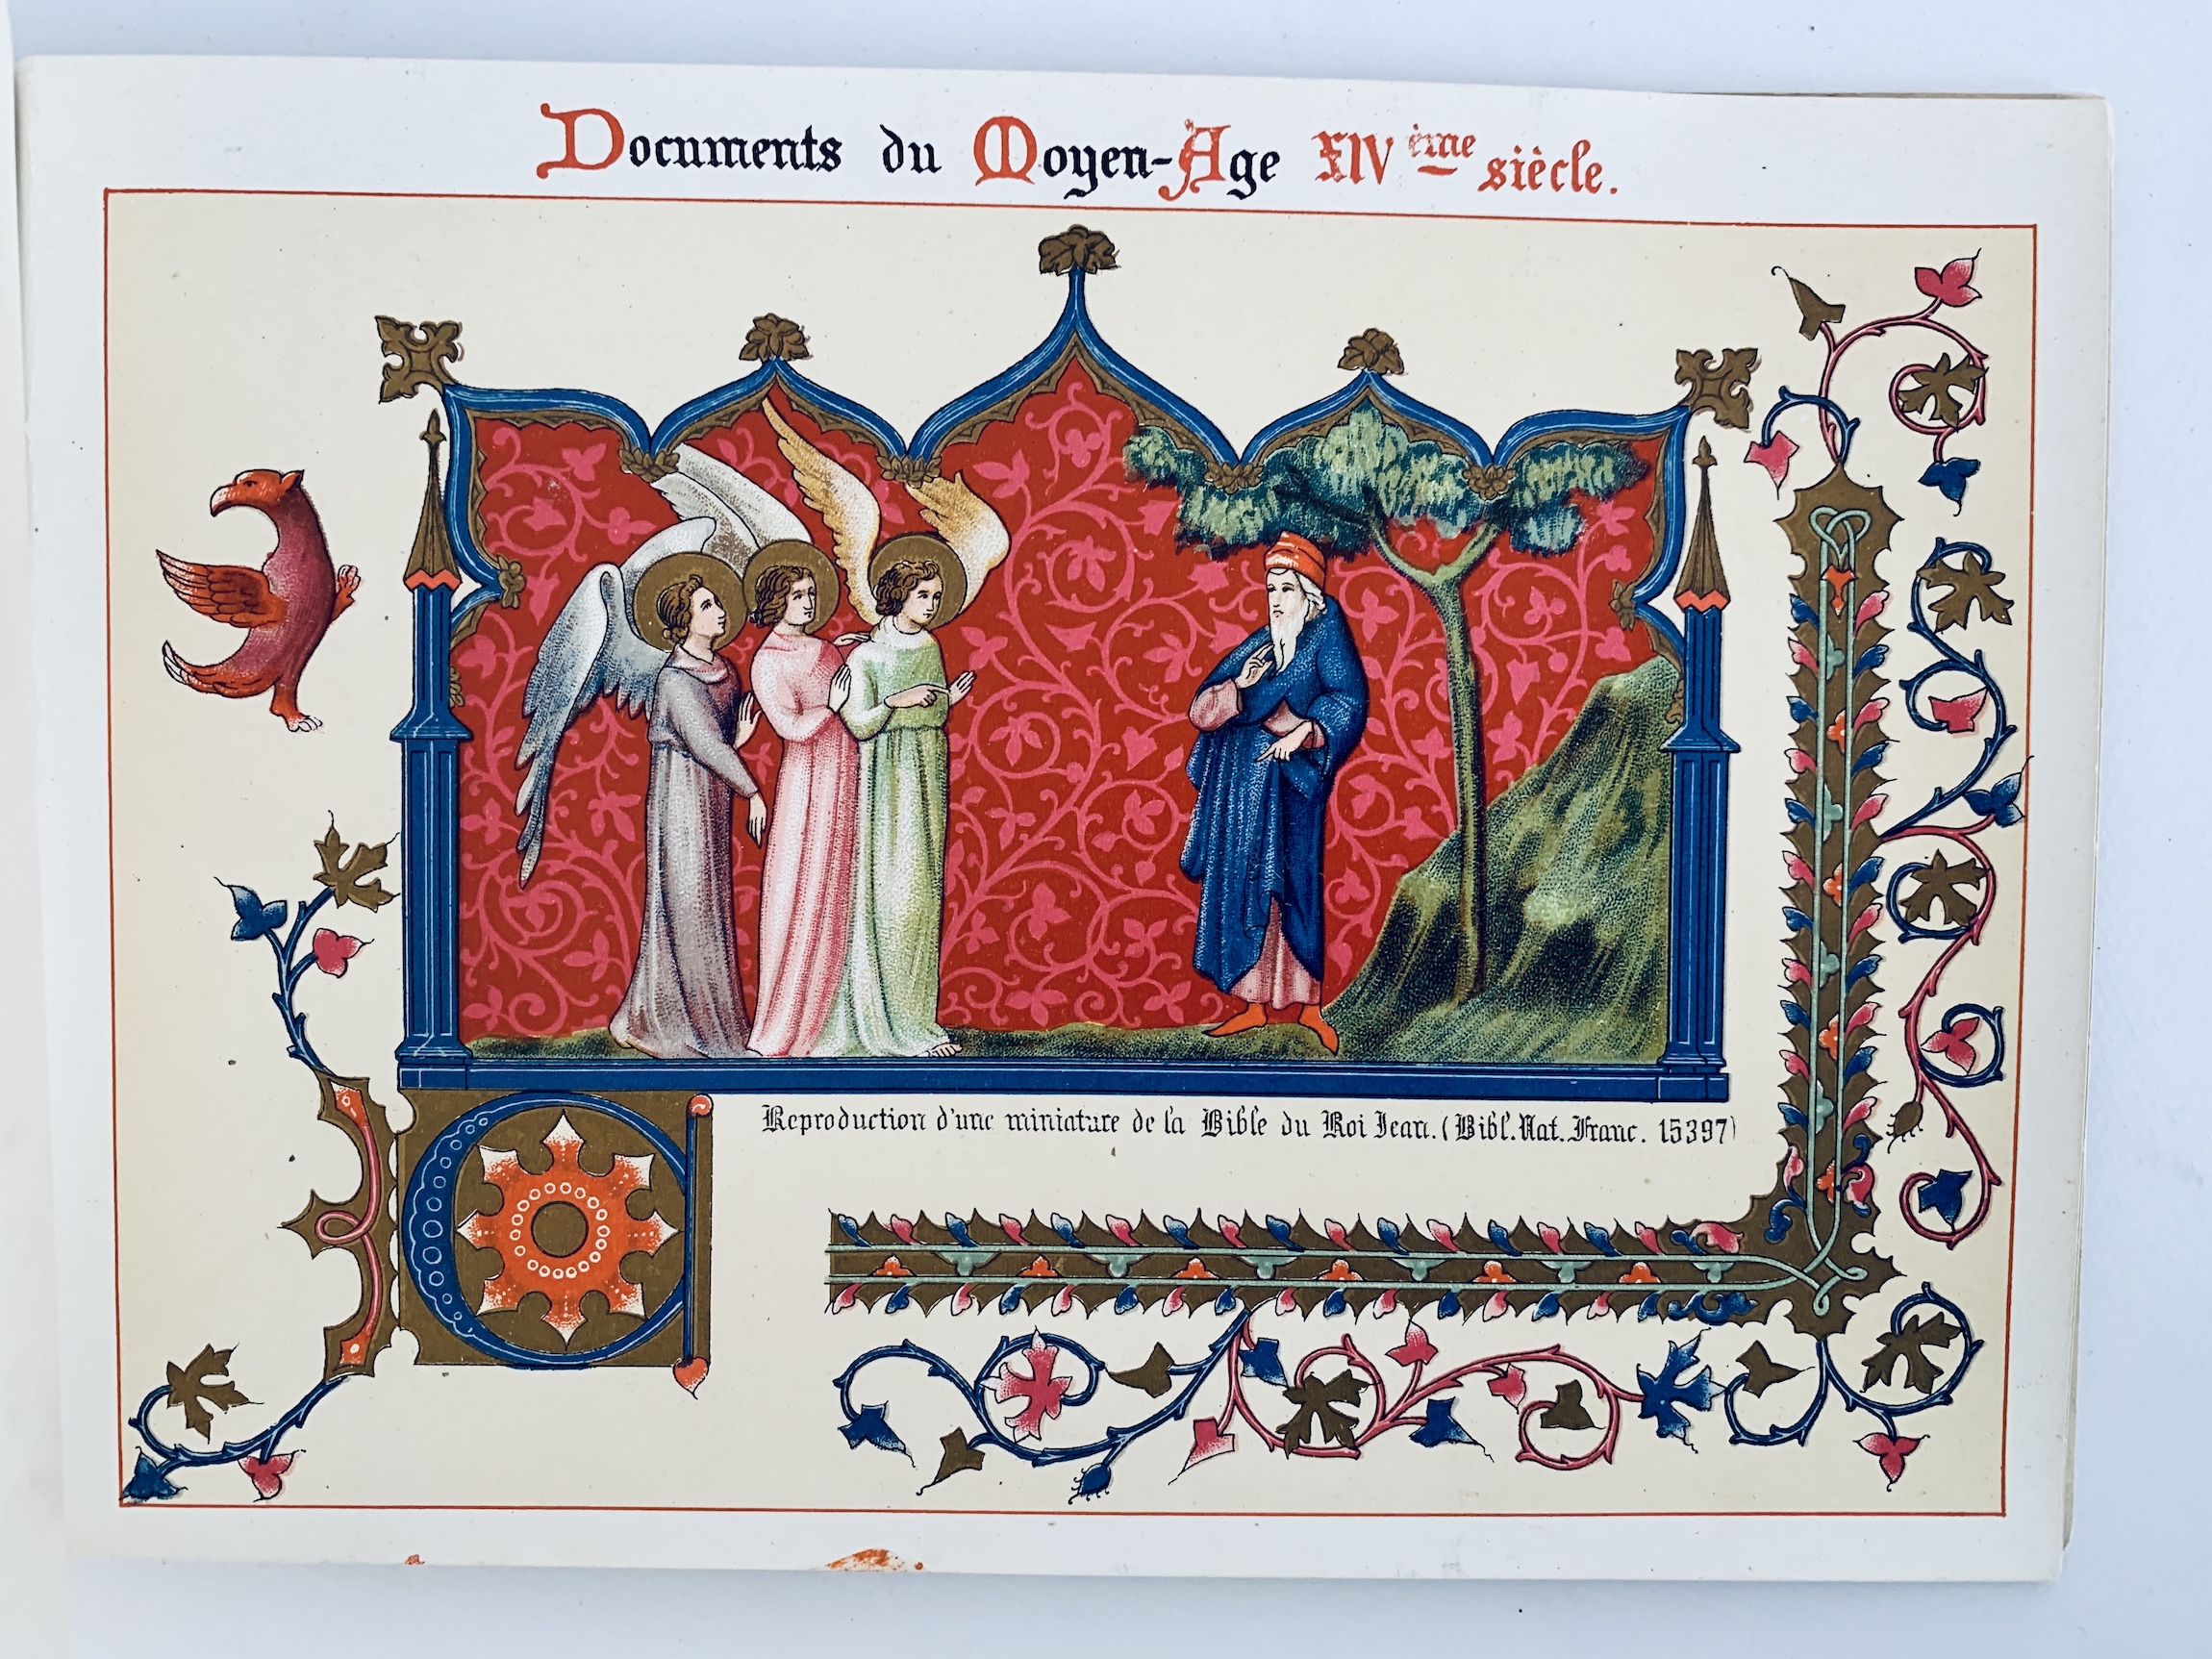 Documents du Moyen-Age XIVème siècle.
Reproduction d'une miniature de la Bible du Roi Jean. (Bibl. Nat. Franc. 15397)